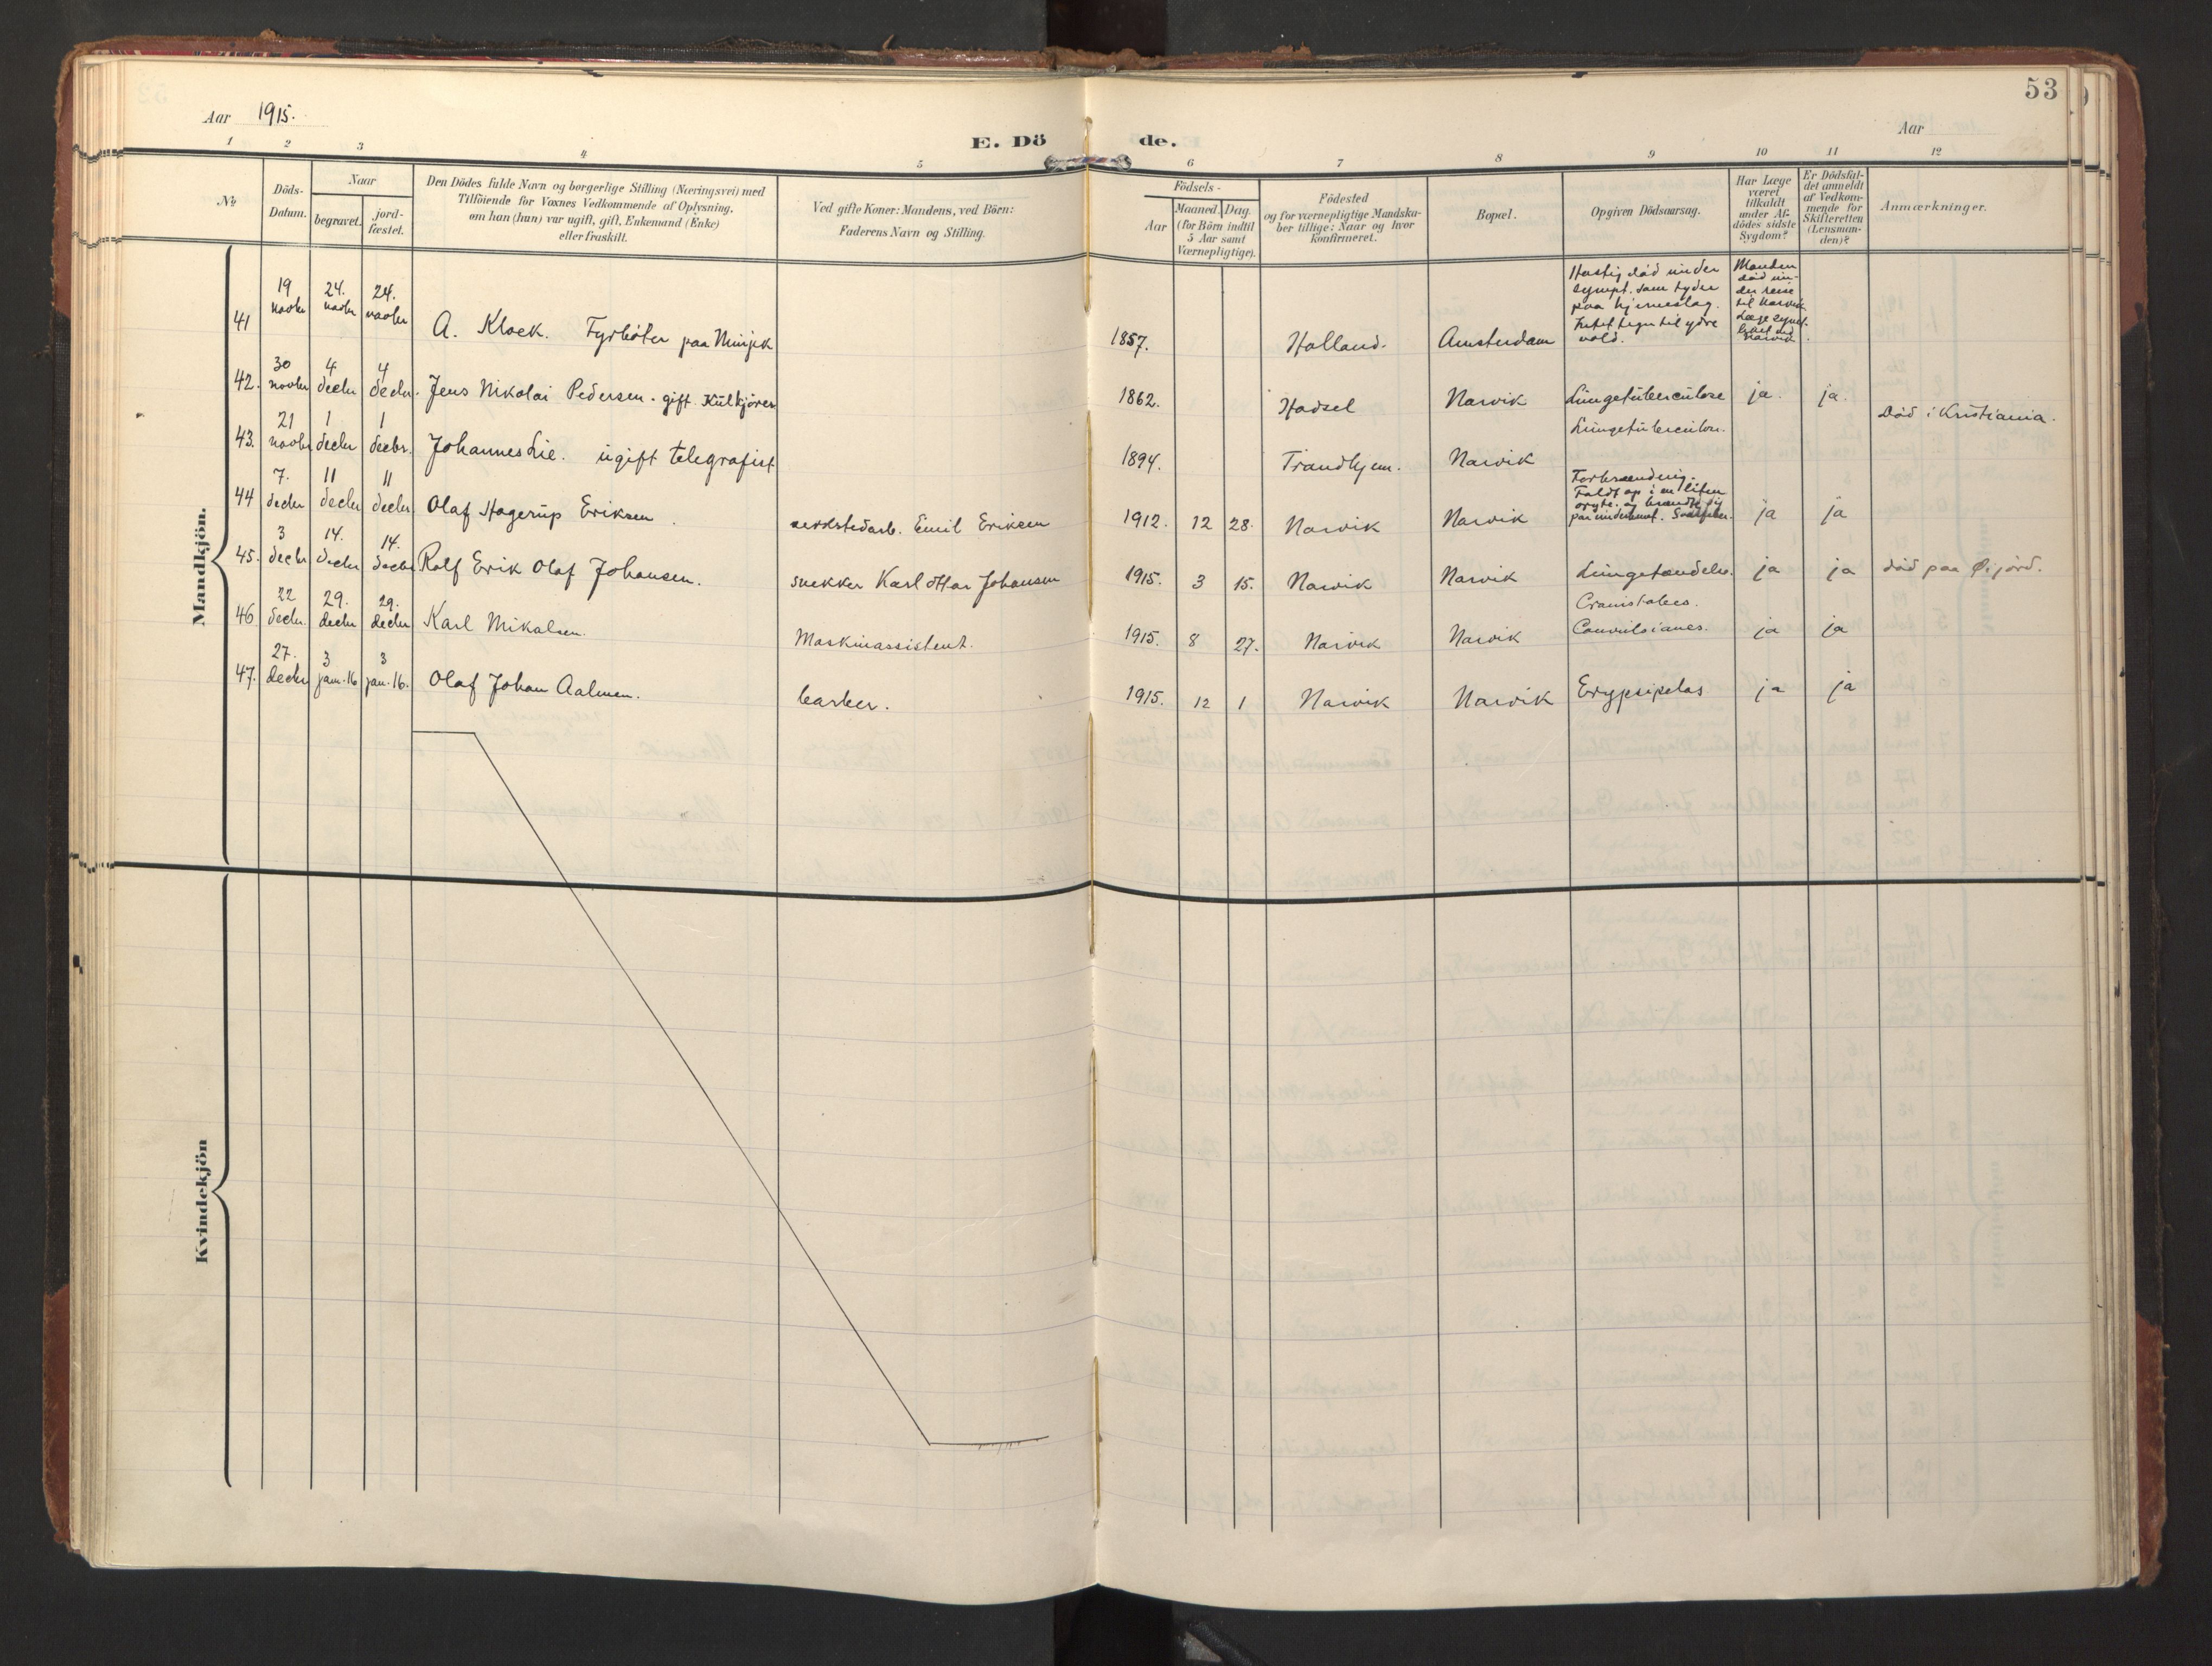 53
Aar 1915.
E. Dö de.
Aar
1 2 3 4 5 6 7 8 9 10 11 12
No
Döds-
Datum.
Naar
begravet.
jord-
fæstet.
Den Dödes fulde Navn og borgerlige Stilling (Næringsvei) med
Tilföiende for Voxnes Vedkommende af Oplysning,
om han (hun) var ugift, gift, Enkemand (Enke)
eller fraskilt.
Ved gifte Koner: Mandens, ved Börn:
Faderens Navn og Stilling.
Födsels-
Aar
Maaned. Dag.
(for Börn indtil
5 Aar samt
Værnepligtige).
Födested
og for værnepligtige Mandska-
ber tillige: Naar og hvor
konfirmeret.
Bopæl.
Opgiven Dödsaarsag.
Har Læge
været
tilkaldt
under Af-
dödes sidste
Sygdom?
Er Dödsfal-
det anmeldt
af Vedkom-
mende for
Skifteretten
(Lensman-
den)?
Anmærkninger.
Mandkjön.
41
19 novbr
24. novbr
24. novbr
A. Kloek. Fyrböter paa
1857.
Holland.
Amsterdam
Hastig död under
sympt. som tyder
paa hjerneslag.
Intet tegn til ydre
vold.
Manden
död un-
der reise
til Narvik
Narvik
42.
30 novbr
4 decbr
4 decbr.
Jens Nikolai Pedersen. gift. Kulkjörer
1862.
Hadsel
Narvik
Lungetuberculose
ja.
ja.
43.
21 novbr
1 decbr
1 decbr.
Johannes Lie. ugift telegrafist
1894.
Trondhjem.
Narvik
Lungetuberculose.
död i Kristiania.
44
7. decbr
11 decbr
11 decbr
Olaf Hagerup Eriksen
verkstedarb. Emil Eriksen
1912. 12 28.
Narvik
Narvik
Forbrænding.
Faldt op i en liten
gryte og brændte sig
ja
ja
45.
3 decbr
14. decbr
14. decbr
Rolf Erik Olaf Johansen.
snekker Karl Johansen
1915. 3 15.
Narvik
Narvik
Lungetændelse.
ja
ja
död paa Öijord.
46
22 decbr.
29. decbr
29. decbr
Karl Mikalsen.
Maskinassistent.
1915. 8 27.
Narvik
Narvik
Craniotabes.
Convulsiones.
ja
ja
47.
27. decbr
3 jan. 16
3 jan. 16.
Olaf Johan Aalmen.
barber.
1915. 12 1
Narvik
Narvik
Erypsipelas
ja
ja
Kvindekjön